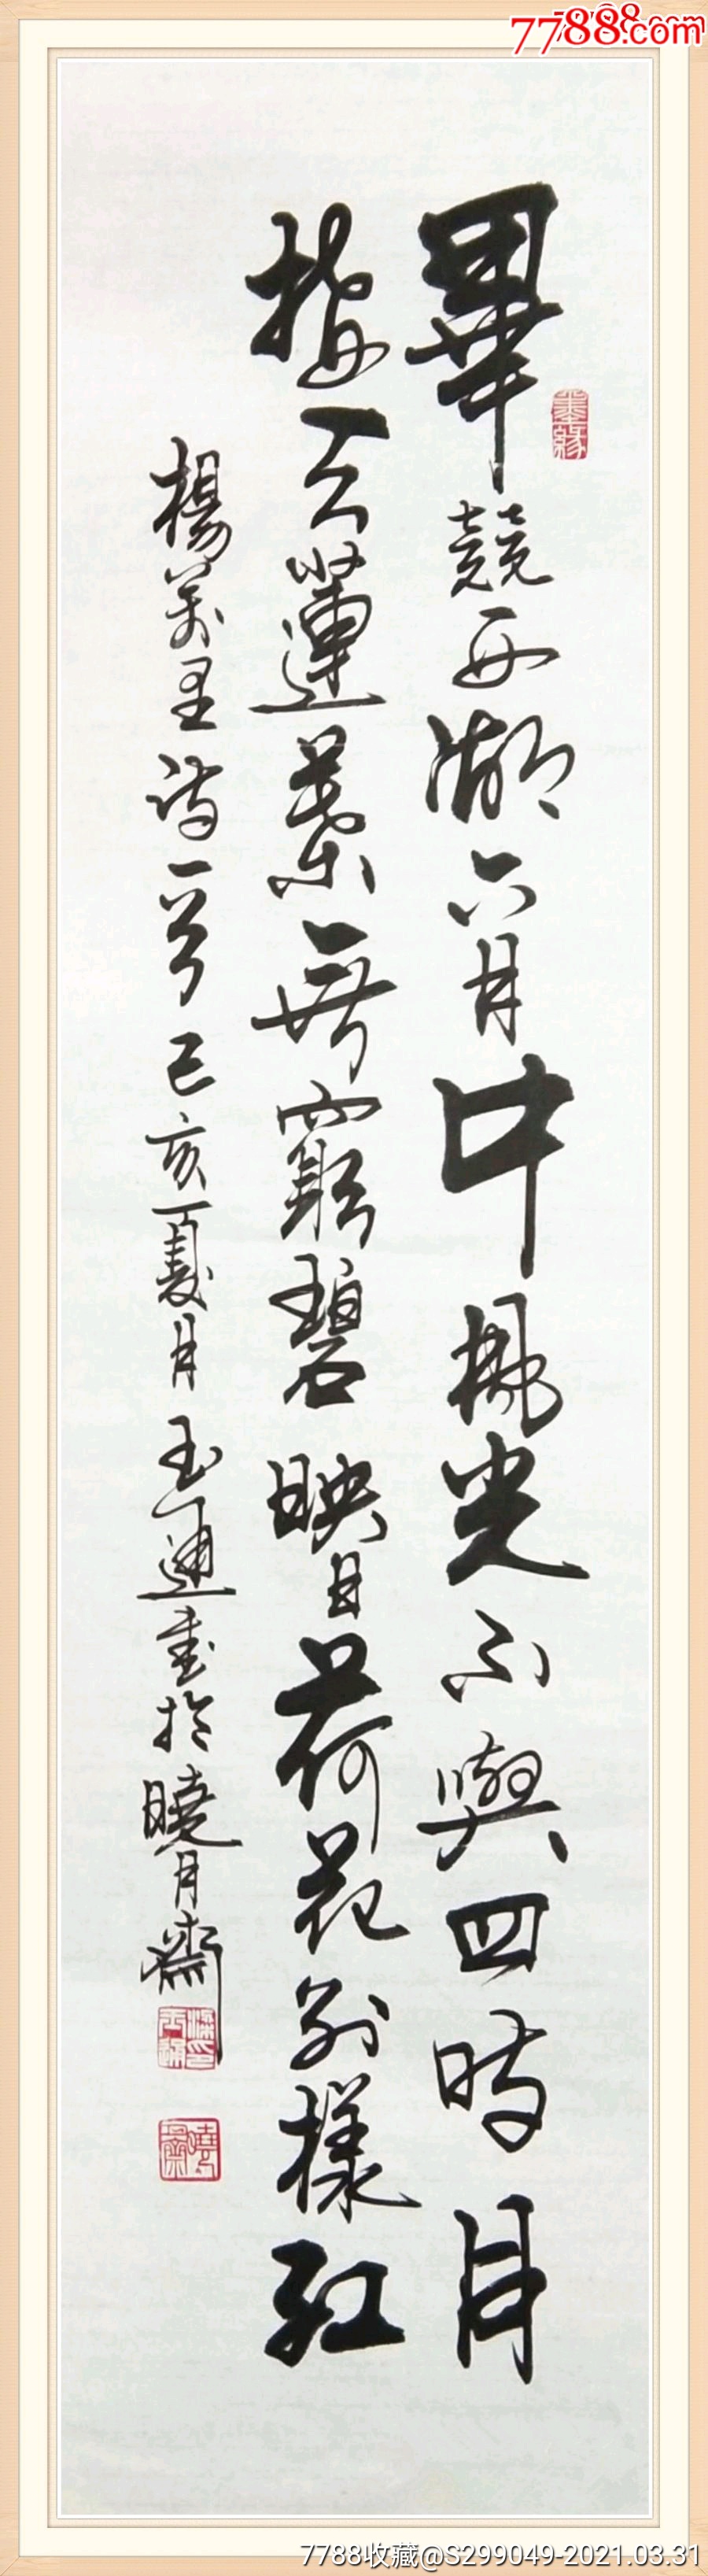 7788.com
畢競西湖六月中風光不與四時同
墨緣
接天蓮葉無窮碧映日荷花別樣紅
楊萬里詩一首己亥夏月玉通書於曉月齋
7788收藏@S299049-2021.03.31